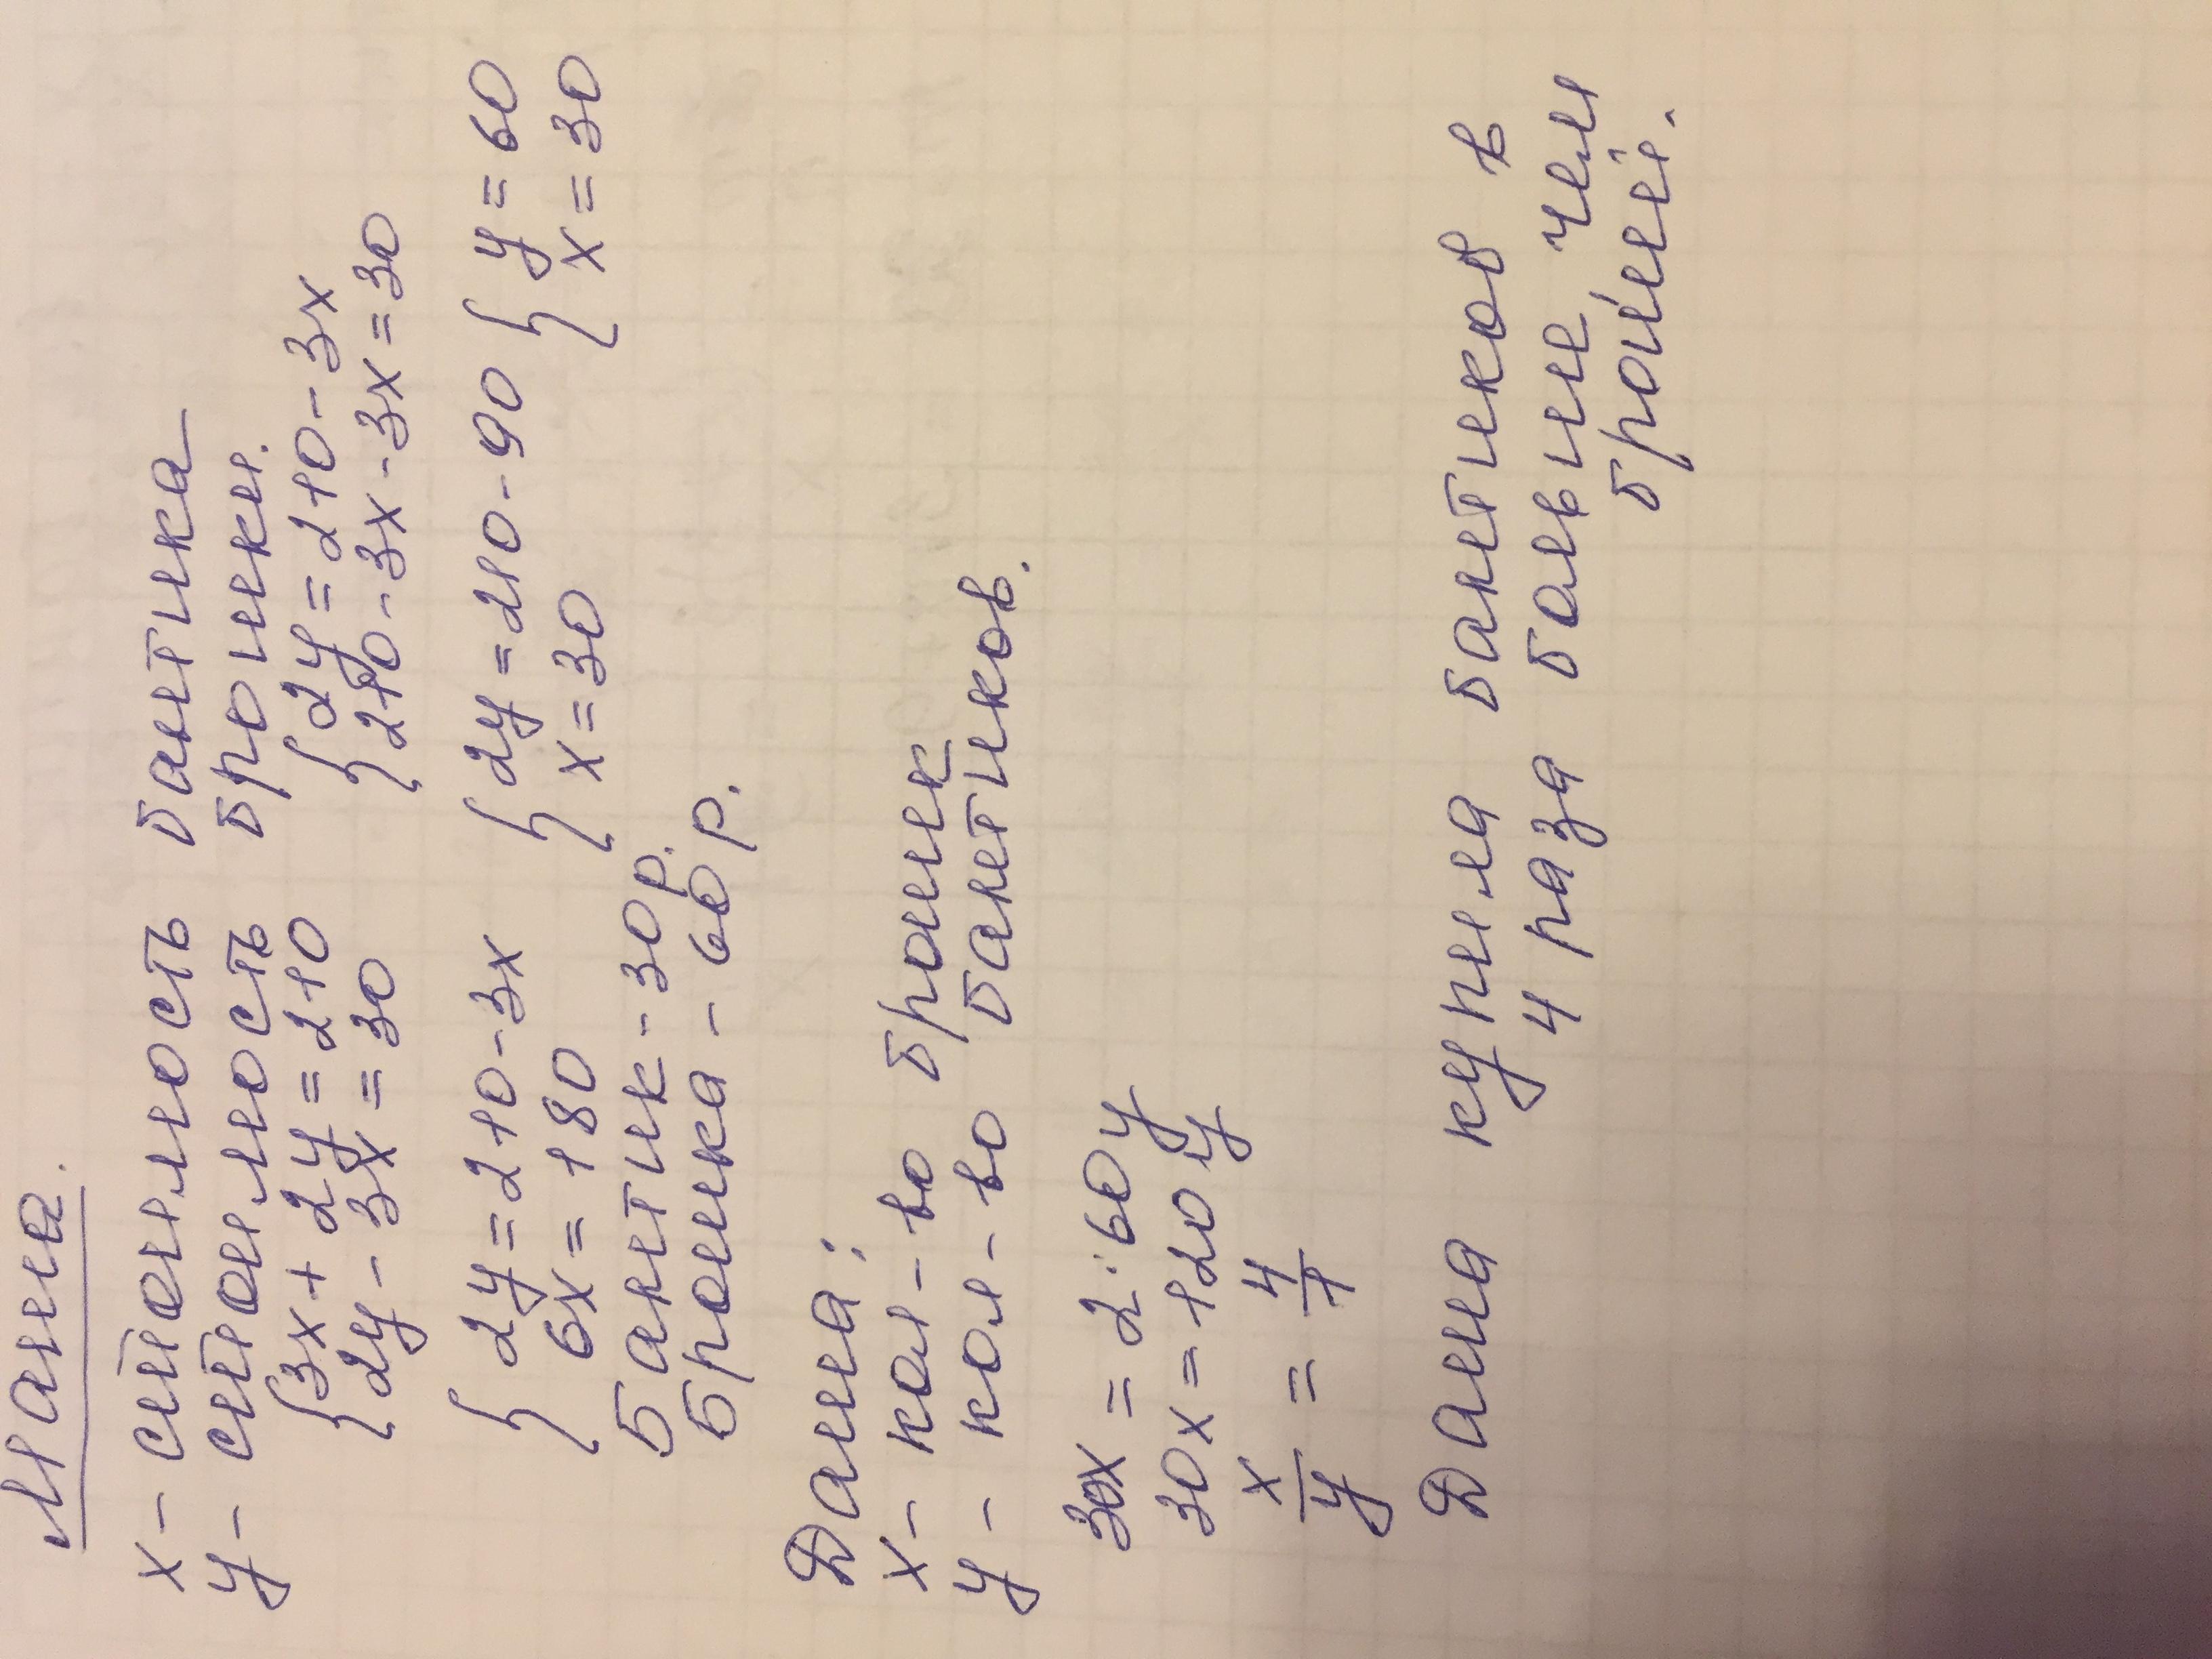 Маша.
x - стоимость бантика
y - стоимость брошки.
{ 3x + 2y = 210 { 2y = 210 - 3x
2y - 3x = 30 210 - 3x - 3x = 30
{ 2y = 210 - 3x { 2y = 210 - 90 { y = 60
6x = 180 x = 30 x = 30
Бантик - 30 р.
Брошка - 60 р.
Даша:
x - кол-во брошек
y - кол-во бантиков.
30x = 2·60y
30x = 120y
x/y = 4/1
Даша купила бантиков в
4 раза больше чем
брошей.